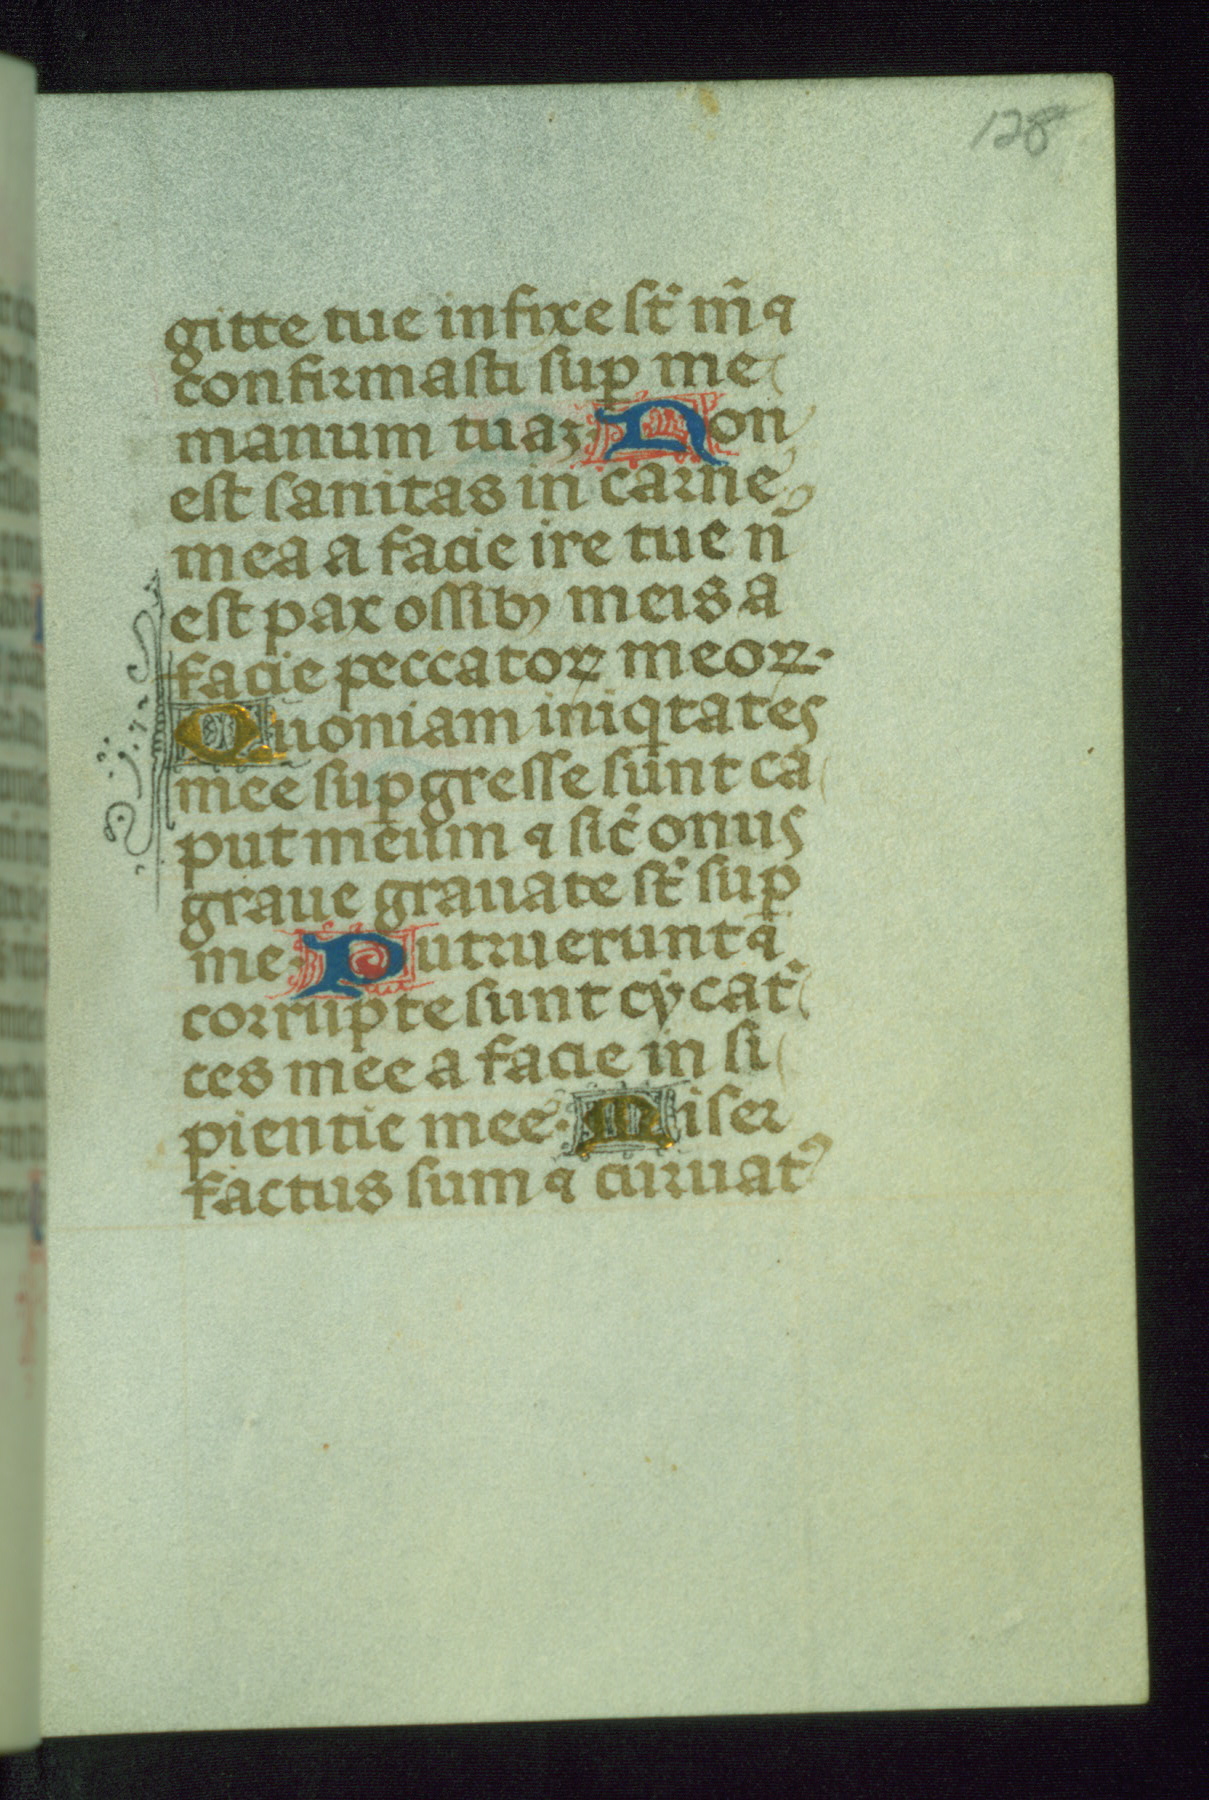 128
gitte tue infixe st̄ m̄ ꝯ
confirmasti suꝑ me
manum tuaꝫ. Non
est sanitas in carne
mea a facie ire tue n̄
est pax ossibꝫ meis a
facie peccatoꝝ meoꝝ.
Quoniam iniqtates
mee suꝑgresse sunt ca
put meum ⁊ sic̄ onus
graue grauate st̄ suꝑ
me. Putruerunt ⁊
corrupte sunt cẏcat̄
ces mee a facie in si
pientie mee. Miser
factus sum ⁊ curuat᷒